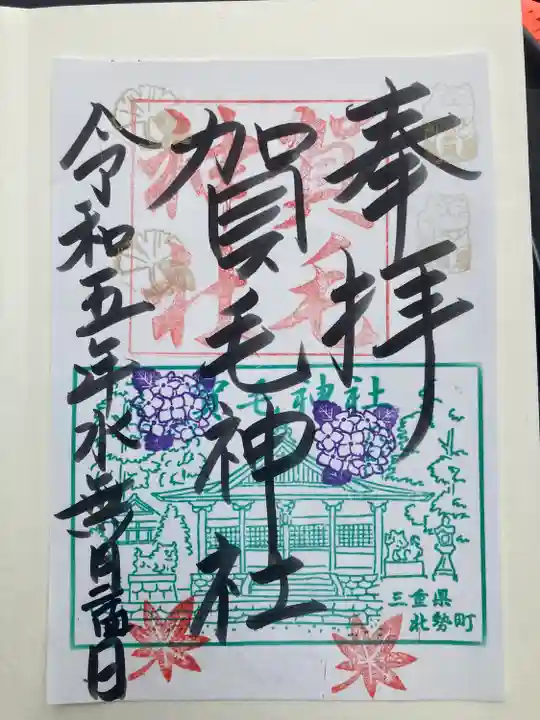 奉拝
賀毛神社
令和五年水無月
賀毛神社
賀毛神社
三重県
北勢町